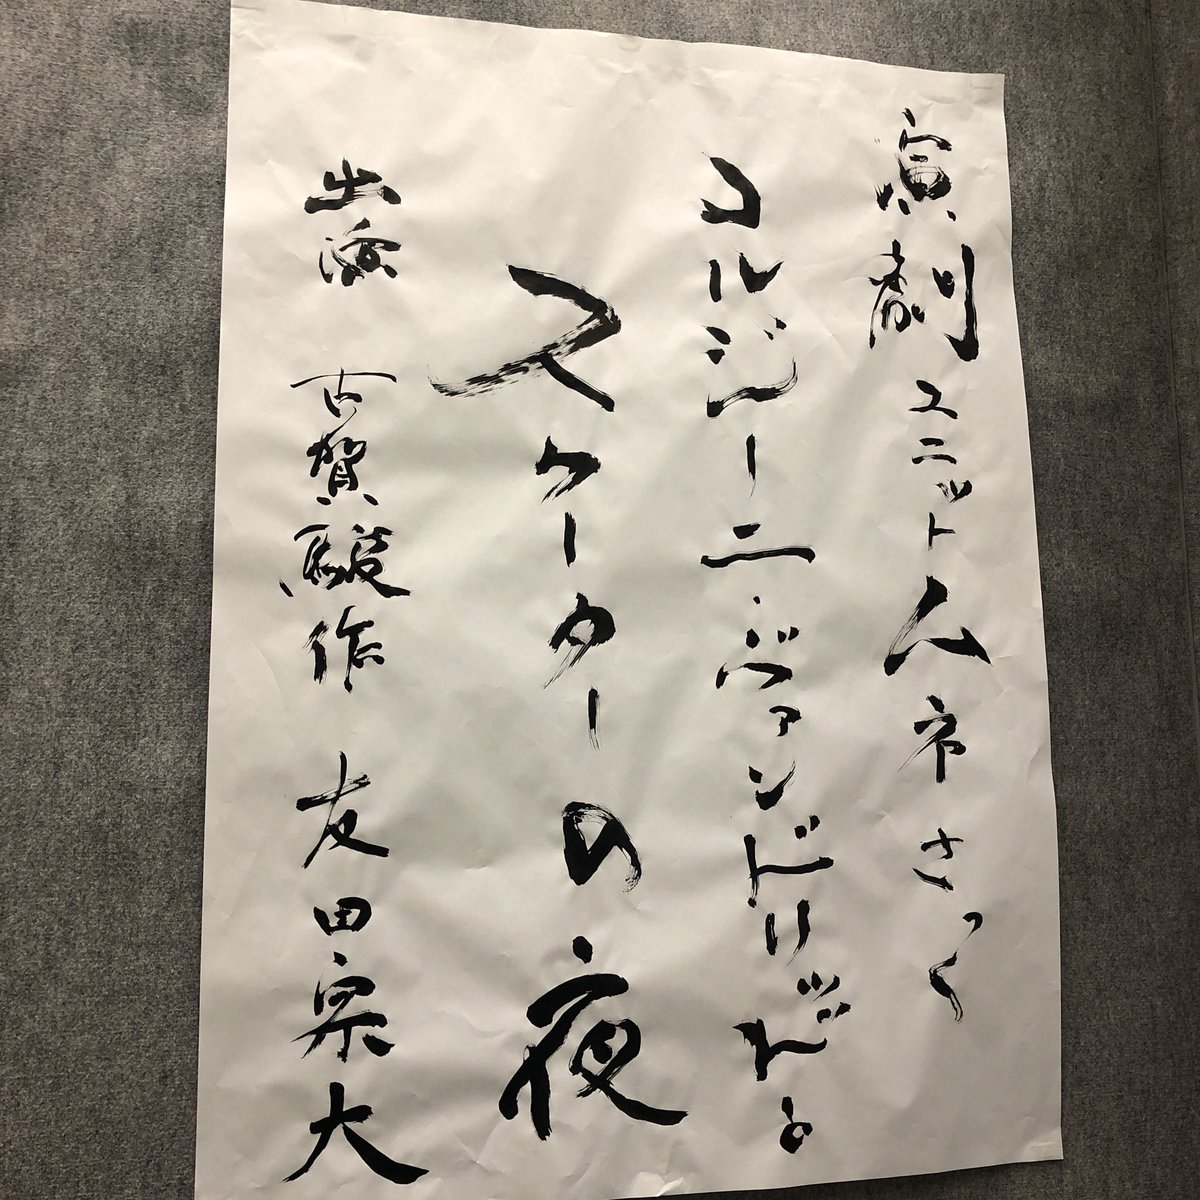 演劇ユニットムネさっく
コルジーニ・ヴァンドリッドよ
スケーターの夜
出演 古賀駿作 友田宗大